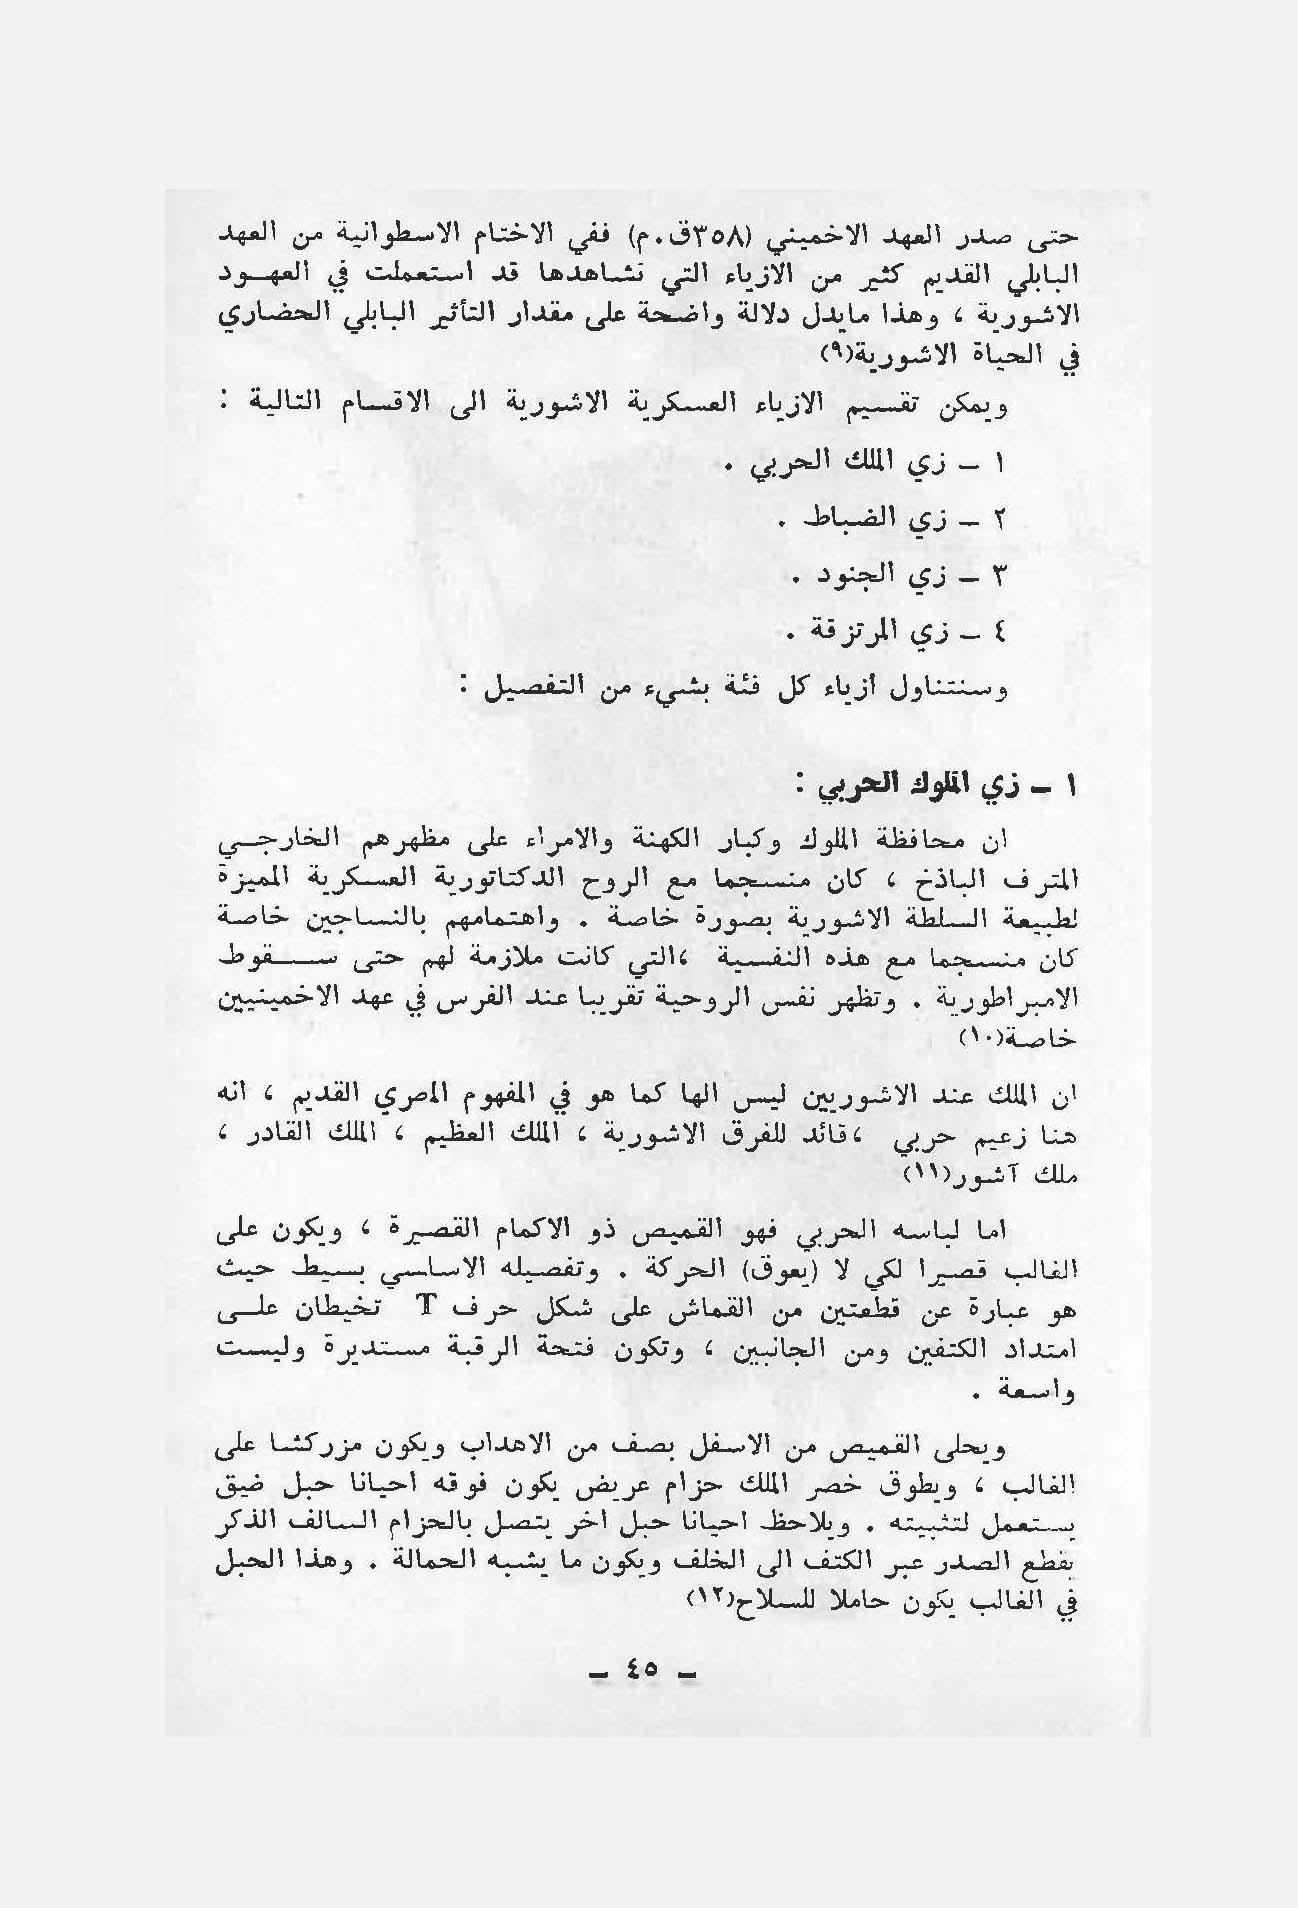 حتى صدر العهد الاخميني (٣٥٨ق.م) ففي الاختام الاسطوانية من العهد
البابلي القديم كثير من الازياء التي نشاهدها قد استعملت في العهود
الاشورية ، وهذا مايدل دلالة واضحة على مقدار التأثير البابلي الحضاري
في الحياة الاشورية(٩)
ويمكن تقسيم الازياء العسكرية الاشورية الى الاقسام التالية :
١ – زي الملك الحربي .
٢ – زي الضباط .
٣ – زي الجنود .
٤ – زي المرتزقة .
وسنتناول أزياء كل فئة بشيء من التفصيل :
١ – زي الملوك الحربي :
ان محافظة الملوك وكبار الكهنة والامراء على مظهرهم الخارجي
المترف الباذخ ، كان منسجما مع الروح الدكتاتورية العسكرية المميزة
لطبيعة السلطة الاشورية بصورة خاصة . واهتمامهم بالنساجين خاصة
كان منسجما مع هذه النفسية ،التي كانت ملازمة لهم حتى سقوط
الامبراطورية . وتظهر نفس الروحية تقريبا عند الفرس في عهد الاخمينيين
خاصة(١٠)
ان الملك عند الاشوريين ليس الها كما هو في المفهوم المصري القديم ، انه
هنا زعيم حربي ،قائد للفرق الاشورية ، الملك العظيم ، الملك القادر ،
ملك آشور(١١)
اما لباسه الحربي فهو القميص ذو الاكمام القصيرة ، ويكون على
الغالب قصيرا لكي لا (يعوق) الحركة . وتفصيله الاساسي بسيط حيث
هو عبارة عن قطعتين من القماش على شكل حرف T تخيطان على
امتداد الكتفين ومن الجانبين ، وتكون فتحة الرقبة مستديرة وليست
واسعة .
ويحلى القميص من الاسفل بصف من الاهداب ويكون مزركشا على
الغالب ، ويطوق خصر الملك حزام عريض يكون فوقه احيانا حبل ضيق
يستعمل لتثبيته . ويلاحظ احيانا حبل اخر يتصل بالحزام السالف الذكر
يقطع الصدر عبر الكتف الى الخلف ويكون ما يشبه الحمالة . وهذا الحبل
في الغالب يكون حاملا للسلاح(١٢)
– ٤٥ –